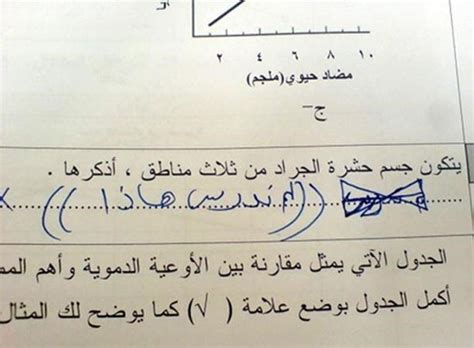 ٢ ٤ ٦ ٨ ١٠
مضاد حيوي (ملجم)
ج-
يتكون جسم حشرة الجراد من ثلاث مناطق ، أذكرها .
((لم ندرس هاذا))
الجدول الآتي يمثل مقارنة بين الأوعية الدموية وأهم
أكمل الجدول بوضع علامة ( √ ) كما يوضح لك المثال